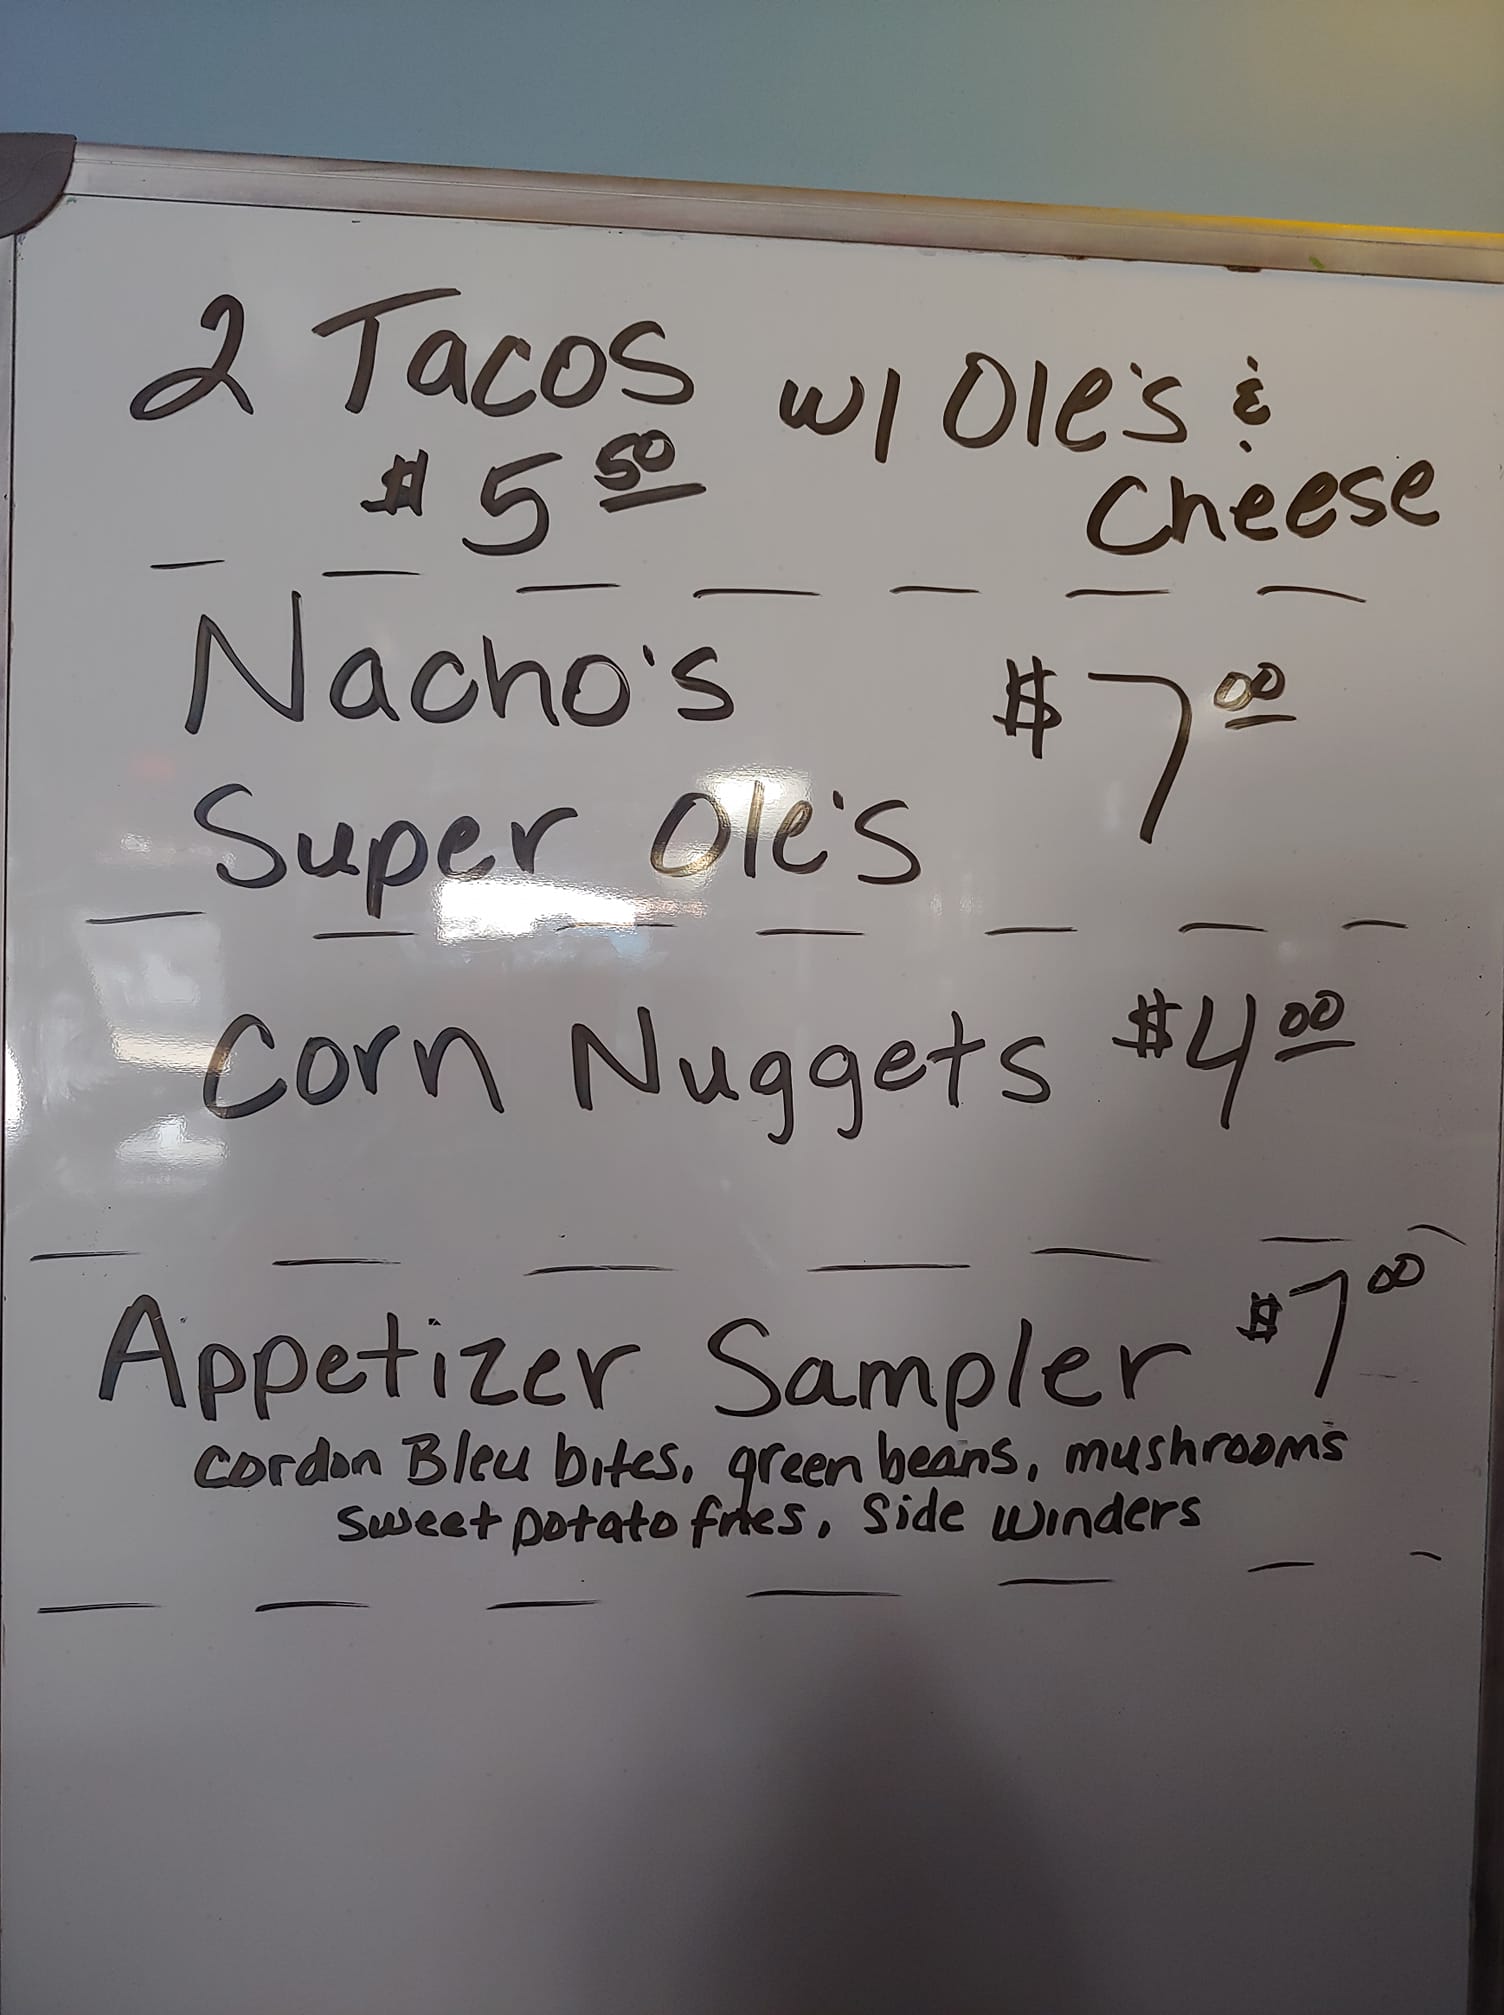 2 Tacos w/ Ole's &
$5.50 Cheese
Nacho's $7.00
Super Ole's
Corn Nuggets $4.00
Appetizer Sampler $7.00
Cordon Bleu bites, green beans, mushrooms
sweet potato fries, Side Winders